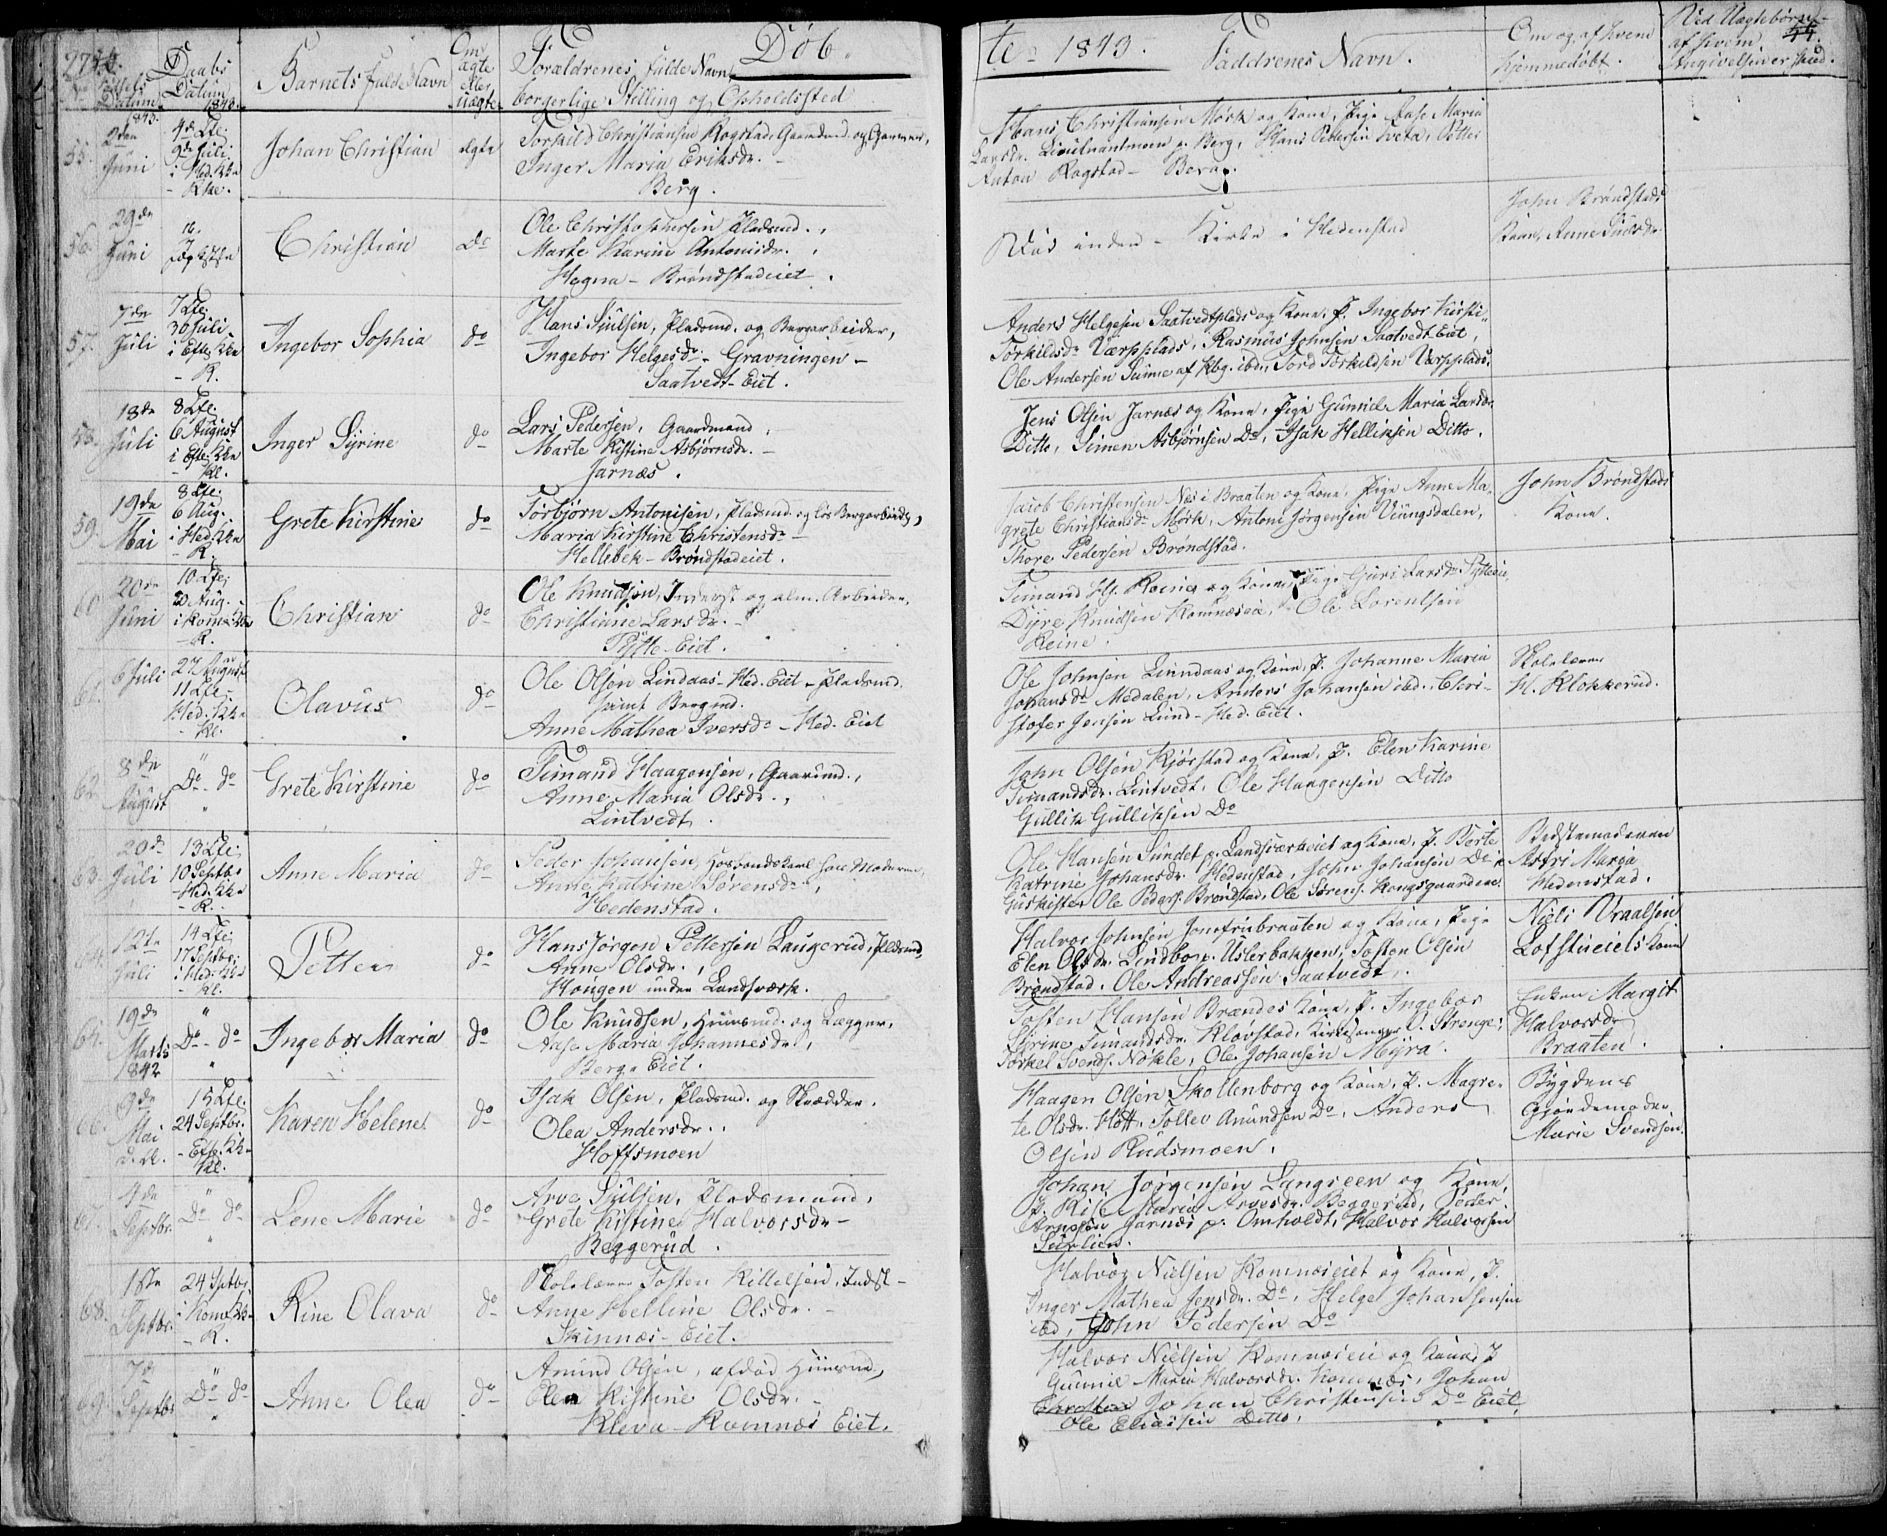 Døbte 1843.
Daabs Datum 1843.
Barnets fulde Navn
Om ægte eller uægte
Forældrenes fulde Navn,
borgerlige Stilling og Opholdssted
Faddrenes Navn.
Om og af hvem
hjemmedøbt.
Ved Uægtebørn
af hvem
Angivelsen er skeed.
55. 2den Juni
9de Juli
i Hed. Kke
Johan Christian
ægte
Torkild Christiansen Rogstad, Gaardmd. og
Inger Maria Eriksdr. -
Berg.
Hans Christiansen Mørk og Kone, Pige Aase Maria
Larsdr. Lieutnantmoen p. Berg, Hans Pettersen Tveta, Petter
Anton Rogstad - Berg.
56. 29de Juni
Christian
Do
Ole Christophersen Pladsmd.,
Marte Karine Antonisdr.,
Hegna - Brøndstadeiet.
Død inden - Kirke i Hedenstad
John Brøndstads
Kone, Anne
57. 7de Juli
30 Juli
i Efte. Kke
- K.
Ingebor Sophia
do
Hans Siulsen, Pladsmd. og Bergarbeider,
Ingebor Helgesdr. - Gravningen -
Saatvedt-Eiet.
Anders Helgesen Saatvedtplads og Kone, P. Ingebor Kirsti-
Torkildsdr Værpplads, Rasmus Johnsen Saatvedt Eiet,
Ole Andersen Suime af Kbg. ibd., Tord Torkildsen Værpplads.
58. 18de Juli
6 August
i Efte. Kke
- Kl.
Inger Syrine
do
Lars Pedersen, Gaardmand,
Marte Kistine Asbjørnsdr. -
Jarnæs.
Jens Olsen Jarnæs og Kone, Pige Gunnil Maria Larsdr.
Ditto, Simen Asbjørnsen Do, Isak Helliksen Ditto.
59. 19de Mai
6 Aug.
i Hed. Kke
- K.
Grete Kirstine
do
Torbjørn Antonisen, Pladsmd. og løs Bergarbeider,
Maria Kirstine Christensdr -
Hellebek - Brøndstadeiet.
Jacob Christensen Næs i Braaten og Kone, Pige Anne Ma-
grete Christiansdr Mørk, Antoni Jørgensen Viungsdalen,
Thore Pedersen Brøndstad.
John Brøndstads
Kone.
60. 20de Juni
20 Aug.
i Kom. Kke
- K.
Christian
do
Ole Knudsen, Inderst og alm. Arbeider,
Christiane Larsdr. -
Tytte-Eiet.
og Kone, Pige Guri Larsdr Tytteeie,
Dyre Knudsen Komnæseie, Ole Lorentsen
Reine.
61. 6 Juli
27 August
Hed. Kke
- Kl.
Olavus
do
Ole Olsen Lindaas - Hed. Eiet - Pladsmd.
samt Bergmd.
Anne Mathea Iversdr - Hed. Eiet
Ole Johnsen Linndaas og Kone, P. Johanne Maria
Johansdr Medalen, Anders Johansen ibd., Chri-
stofer Jensen Lund - Hed. Eiet.
Skolelærer
H. Klokkerud.
62. 8de August
Do do
Grete Kirstine
do
Simand Haagensen, Gaardmd.,
Anne Maria Olsdr.,
Lintvedt.
John Olsen Kjørstad og Kone, P. Elen Karine
Simandsdr. Lintvedt, Ole Haagensen Ditto
Gullik Gulliksen Do
63. 20de Juli
10 Septbr.
Hed. Kke
- K.
Anne Maria
do
Peder Johansen, Huusbondskarl hos Moderen,
Anne Katrine Sørensdr.,
Hedenstad.
Ole Hansen Sundet p. Landsværkeiet og Kone, P. Berte
Katrine Johansdr. Hedenstad, John Johansen Do,
Ole Peders. Brøndstad, Ole Sørens. Kongsgaardene.
Bedstemoderen
Astri Maria
Hedenstad.
64. 12te Juli
17 Septbr.
i Hed. Kke
- Kl.
Petter
do
Hans Jørgen Pettersen Laugerud, Pladsmd.,
Anne Olsdr.,
Hougen under Landsværk.
Halvor Johnsen Jonsrudbraaten og Kone, Pige
Elen Olsdr. Lindbo p. Uslerbakken, Tosten Olsen
Brøndstad, Ole Andreassen Saatvedt.
Niels Vraalsen
Lofstueiets Kone
19de Marts 1842
Do do
Ingebor Maria
do
Ole Knudsen, Huusmd. og Lægger,
Aase Maria Johannesdr.,
Berg-Eiet.
Tosten Hansen Brændes Kone, P. Ingebor
Syrine Simandsdr. Klovstad, Kirkesanger O. Strenge,
Torkel Svends. Nøkle, Ole Johansen Myra.
Enken Margit
Halvorsdr
Braaten.
66. 9de Mai
24 Septbr.
- Efte. Kke
Kl.
Karen Helene
do
Isak Olsen, Pladsmd. og Skrædder,
Olea Andersdr.,
Hoffsmoen
Haagen Olsen Skollenborg og Kone, P. Magre-
te Olsdr. Hott, Tollev Amundsen Do, Anders
Olsen Rudsmoen.
Bygdens
Gjordemoder
Marie Svendsen.
67. 4de Septbr.
Do do
Lene Marie
do
Arve Siulsen, Pladsmand,
Grete Kistine Halvorsdr -
Beggerud.
Johan Jørgensen Langseen og Kone,
P. Maria Arvesdr. Beggerud, Peder
Arnesen Jarnæs p. Omholdt, Halvor Halvorsen
68. 1ste Septbr.
24 Septbr.
i Kom. Kke
- K.
Rine Olava
do
Skolelærer Tosten Kittelsen, Indst -
Anne Helline Olsdr. -
Skinnæs-Eiet.
Halvor Nielsen Komnæseiet og Kone, P.
Inger Mathea Jensdr. Do, Helge Johannsen
ibd, John Pedersen Do
69. 7de Septbr.
Do do
Anne Olea
do
Amund Olsen, afdød Huusmd.,
Elen Kistine Olsdr. -
Kleva - Komnæs Eiet.
Halvor Nielsen Komnæseie og Kone, P
Gunnil Maria Halvorsdr. Komnæs, Johan
Christen Johan Christensen Do Eiet,
Ole Eliassen Ditto.